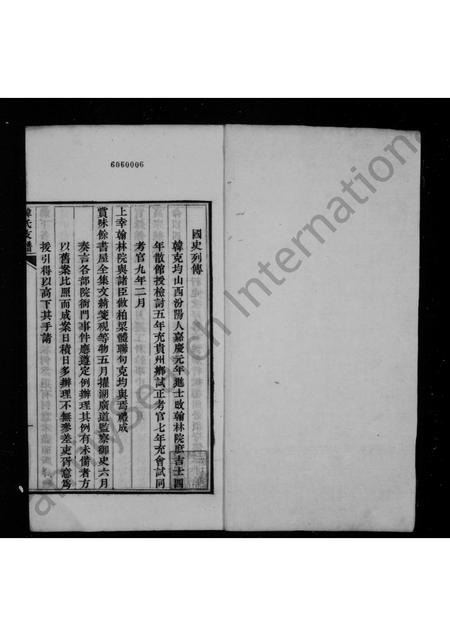 6060006
國史列傳
韓克均山西汾陽人嘉慶元年進士改翰林院庶吉士四
年散館授檢討五年充貴州鄉試正考官七年充會試同
考官九年二月
上幸翰林院與諸臣倣柏梁體聯句克均與焉禮成
賞味餘書屋全集文綺箋硯等物五月擢湖廣道監察御史六月
奏言各部院衙門事件應遵定例辦理其例有未備者方
以舊案比照而成案日積日多辦理不無參差吏胥意爲
援引得以高下其手請
韓氏
International